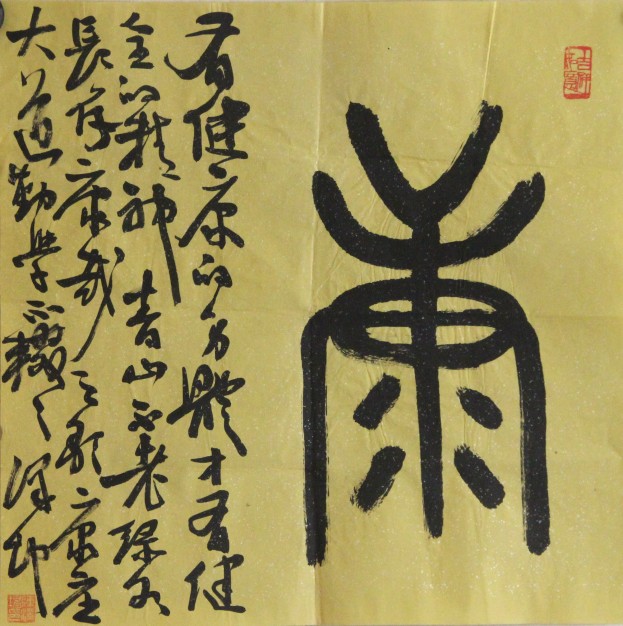 康
有健康的身體才有健
全的精神 青山不老綠水
長存 康哉之歌 康莊
大道 勤學不輟